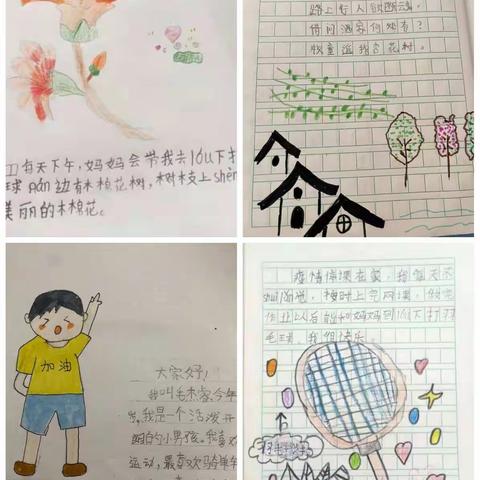 有天下午，妈妈会带我去lóu下打
球 pán边有木棉花树，树支上shèn
美丽的木棉花。
路上行人欲断魂。
借问酒家何处有？
牧童遥指杏花树。
加油
大家好！
我叫毛木容今年
岁，我是一个活泼开
朗的小男孩。我喜欢
运动，最喜欢骑单车
疫情停课在家，我每天
shuì觉，按时上完网课，做完
作业以后能和妈妈到lóu下打羽
毛球，我很快乐。